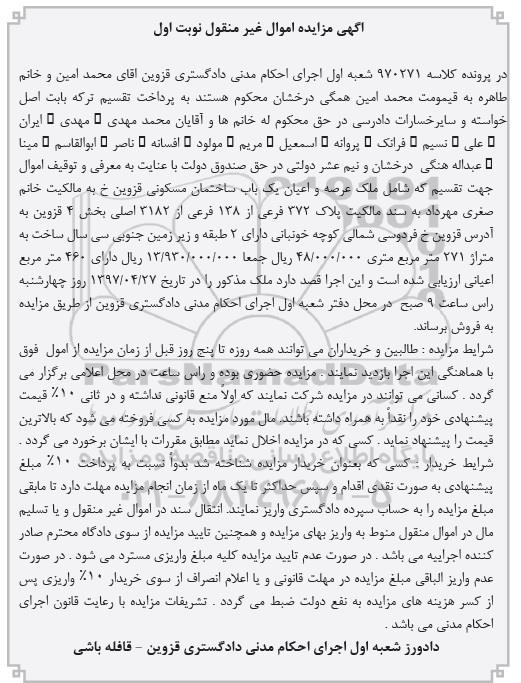 آگهی مزایده اموال غیر منقول نوبت اول
در پرونده کلاسه ۹۷۰۲۷۱ شعبه اول اجرای احکام مدنی دادگستری قزوین اقای محمد امین و خانم
طاهره به قیمومت محمد امین همگی درخشان محکوم هستند به پرداخت تقسیم ترکه بابت اصل
خواسته و سایرخسارات دادرسی در حق محکوم له خانم ها و آقایان محمد مهدی ▯ مهدی ▯ ایران
▯ علی ▯ نسیم ▯ فرانک ▯ پروانه ▯ اسمعیل ▯ مریم ▯ مولود ▯ افسانه ▯ ناصر ▯ ابوالقاسم ▯ مینا
▯ عبداله هنگی درخشان و نیم عشر دولتی در حق صندوق دولت با عنایت به معرفی و توقیف اموال
جهت تقسیم که شامل ملک عرصه و اعیان یک باب ساختمان مسکونی قزوین خ به مالکیت خانم
صغری مهرداد به سند مالکیت پلاک ۳۷۲ فرعی از ۱۳۸ فرعی از ۳۱۸۲ اصلی بخش ۴ قزوین به
آدرس قزوین خ فردوسی شمالی کوچه خونبانی دارای ۲ طبقه و زیر زمین جنوبی سی سال ساخت به
متراژ ۲۷۱ متر مربع متری ۴۸/۰۰۰/۰۰۰ ریال جمعا ۱۳/۹۳۰/۰۰۰/۰۰۰ ریال دارای ۴۶۰ متر مربع
اعیانی ارزیابی شده است و این اجرا قصد دارد ملک مذکور را در تاریخ ۱۳۹۷/۰۴/۲۷ روز چهارشنبه
راس ساعت ۹ صبح در محل دفتر شعبه اول اجرای احکام مدنی دادگستری قزوین از طریق مزایده
به فروش برساند.
شرایط مزایده : طالبین و خریداران می توانند همه روزه تا پنج روز قبل از زمان مزایده از امول فوق
با هماهنگی این اجرا بازدید نمایند . مزایده حضوری بوده و راس ساعت در محل اعلامی برگزار می
گردد . کسانی می توانند در مزایده شرکت نمایند که اولاً منع قانونی نداشته و در ثانی ۱۰٪ قیمت
پیشنهادی خود را نقداً به همراه داشته باشند. مال مورد مزایده به کسی فروخته می شود که بالاترین
قیمت را پیشنهاد نماید . کسی که در مزایده اخلال نماید مطابق مقررات با ایشان برخورد می گردد .
شرایط خریدار : کسی که بعنوان خریدار مزایده شناخته شد بدواً نسبت به پرداخت ۱۰٪ مبلغ
پیشنهادی به صورت نقدی اقدام و سپس حداکثر تا یک ماه از زمان انجام مزایده مهلت دارد تا مابقی
مبلغ مزایده را به حساب سپرده دادگستری واریز نمایند. انتقال سند در اموال غیر منقول و یا تسلیم
مال در اموال منقول منوط به واریز بهای مزایده و همچنین تایید مزایده از سوی دادگاه محترم صادر
کننده اجراییه می باشد . در صورت عدم تایید مزایده کلیه مبلغ واریزی مسترد می شود . در صورت
عدم واریز الباقی مبلغ مزایده در مهلت قانونی و یا اعلام انصراف از سوی خریدار ۱۰٪ واریزی پس
از کسر هزینه های مزایده به نفع دولت ضبط می گردد . تشریفات مزایده با رعایت قانون اجرای
احکام مدنی می باشد .
دادورز شعبه اول اجرای احکام مدنی دادگستری قزوین – قافله باشی